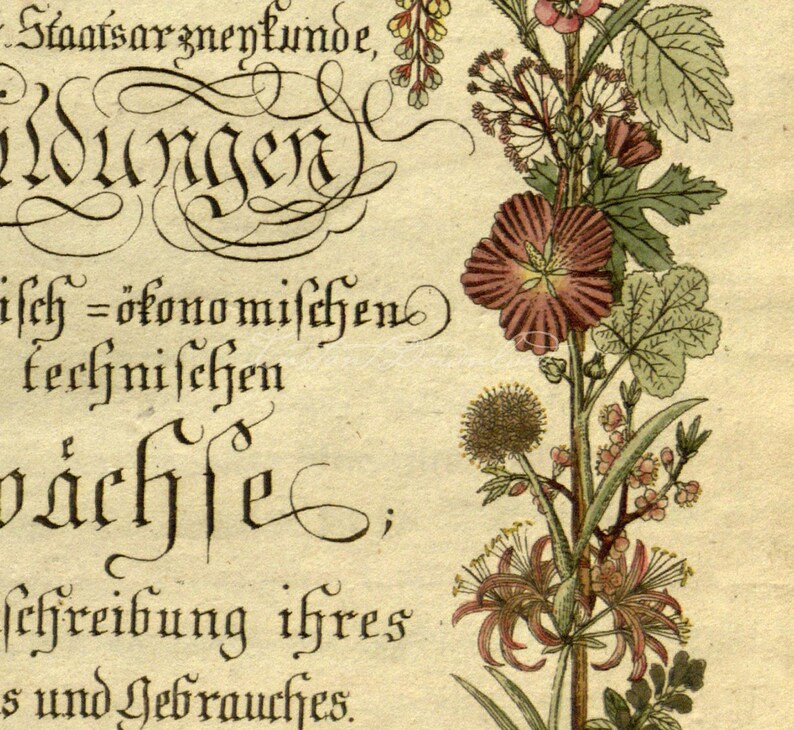 Staatsarzneykunde,
ildungen
isch=ökonomischen
technischen
wächse;
schreibung ihres
s und Gebrauches.